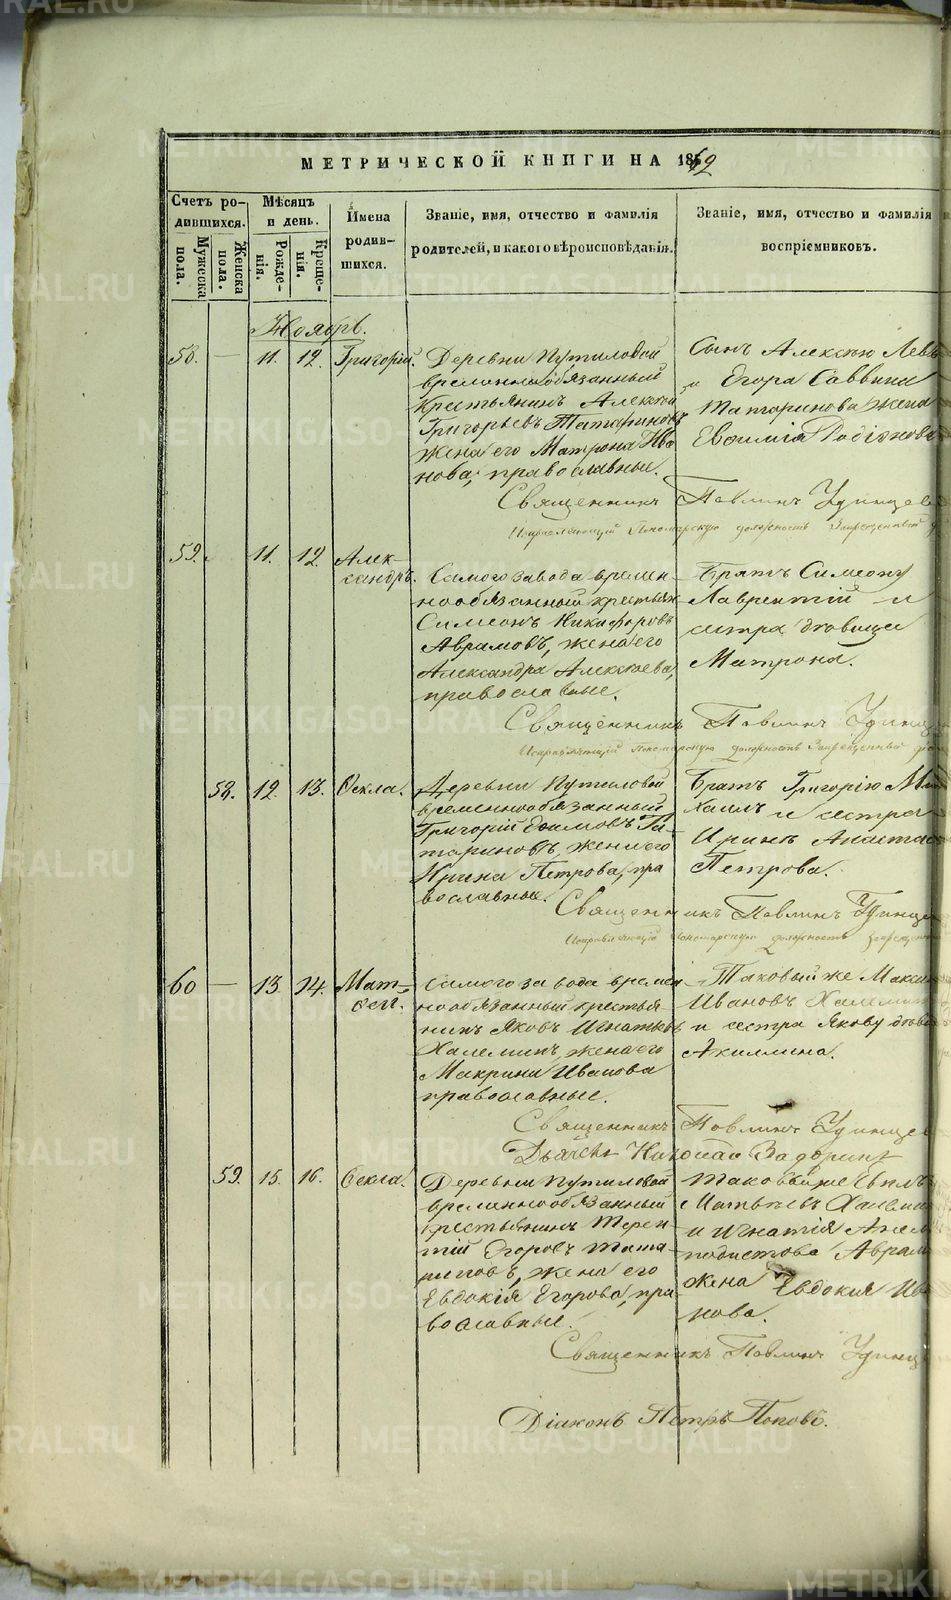 МЕТРИЧЕСКОЙ КНИГИ НА 1862
Счетъ ро-
дившихся.
Мужеска
пола.
Женска
пола.
Мѣсяцъ
и день.
Рожде-
нія.
Креще-
нія.
Имена
родив-
шихся.
Званіе, имя, отчество и фамилія
родителей, и какого вѣроисповѣданія.
Званіе, имя, отчество и фамилія
воспріемниковъ.
Ноябрь.
58. — 11. 12. Григорій.
Деревни Путиловой
временнообязанный
Крестьянинъ Алексѣй
Григорьевъ Татариновъ
жена его Матрона Ива
нова, православные.
Сынъ Алексѣю Левъ
и Егора Саввина
Татаринова жена
Евѳимія Родіонова
Священникъ Павлинъ Удинцев
Исправляющій Пономарскую должность Запрещенный
59. 11. 12. Алек-
сандръ.
Самого завода времен-
нообязанный крестьян
Симеонъ Никифоровъ
Аврамовъ, жена его
Александра Алексѣева,
православные.
Братъ Симеону
Лаврентій и
сестра дѣвица
Матрона.
Священникъ Павлинъ Удинц
Исправляющій Пономарскую должность Запрещенный
58. 12. 13. Ѳекла.
Деревни Путиловой
временнообязанный
Григорій Ефимовъ Та-
тариновъ, жена его
Ирина Петрова, пра
вославные.
Братъ Григорію Ми
хаилъ и сестра
Иринѣ Анастас
Петрова.
Священникъ Павлинъ Удинце
Исправляющій Пономарскую должность Запрещенн
60 — 13. 14. Мат-
ѳей.
Самого завода времен
нообязанный крестья-
нинъ Яковъ Игнатьевъ
Халеминъ, жена его
Макрина Иванова
православные.
Таковый же Макси
Ивановъ Халемин
и сестра Якову дѣви
Акилина.
Священникъ Павлинъ Удинце
Дьячекъ Николай Задоринъ
59. 15. 16. Ѳекла.
Деревни Путиловой
временнообязанный
крестьянинъ Терен-
тій Егоровъ Тата-
риновъ, жена его
Евдокія Егорова, пра-
вославные.
Таковый же
Матвѣевъ Халеми
и Игнатія Апел
подистова Аврам
жена Евдокия Ив
нова.
Священникъ Павлинъ Удинц
Діаконъ Петръ Поповъ.
METRIKI.GASO-URAL.RU